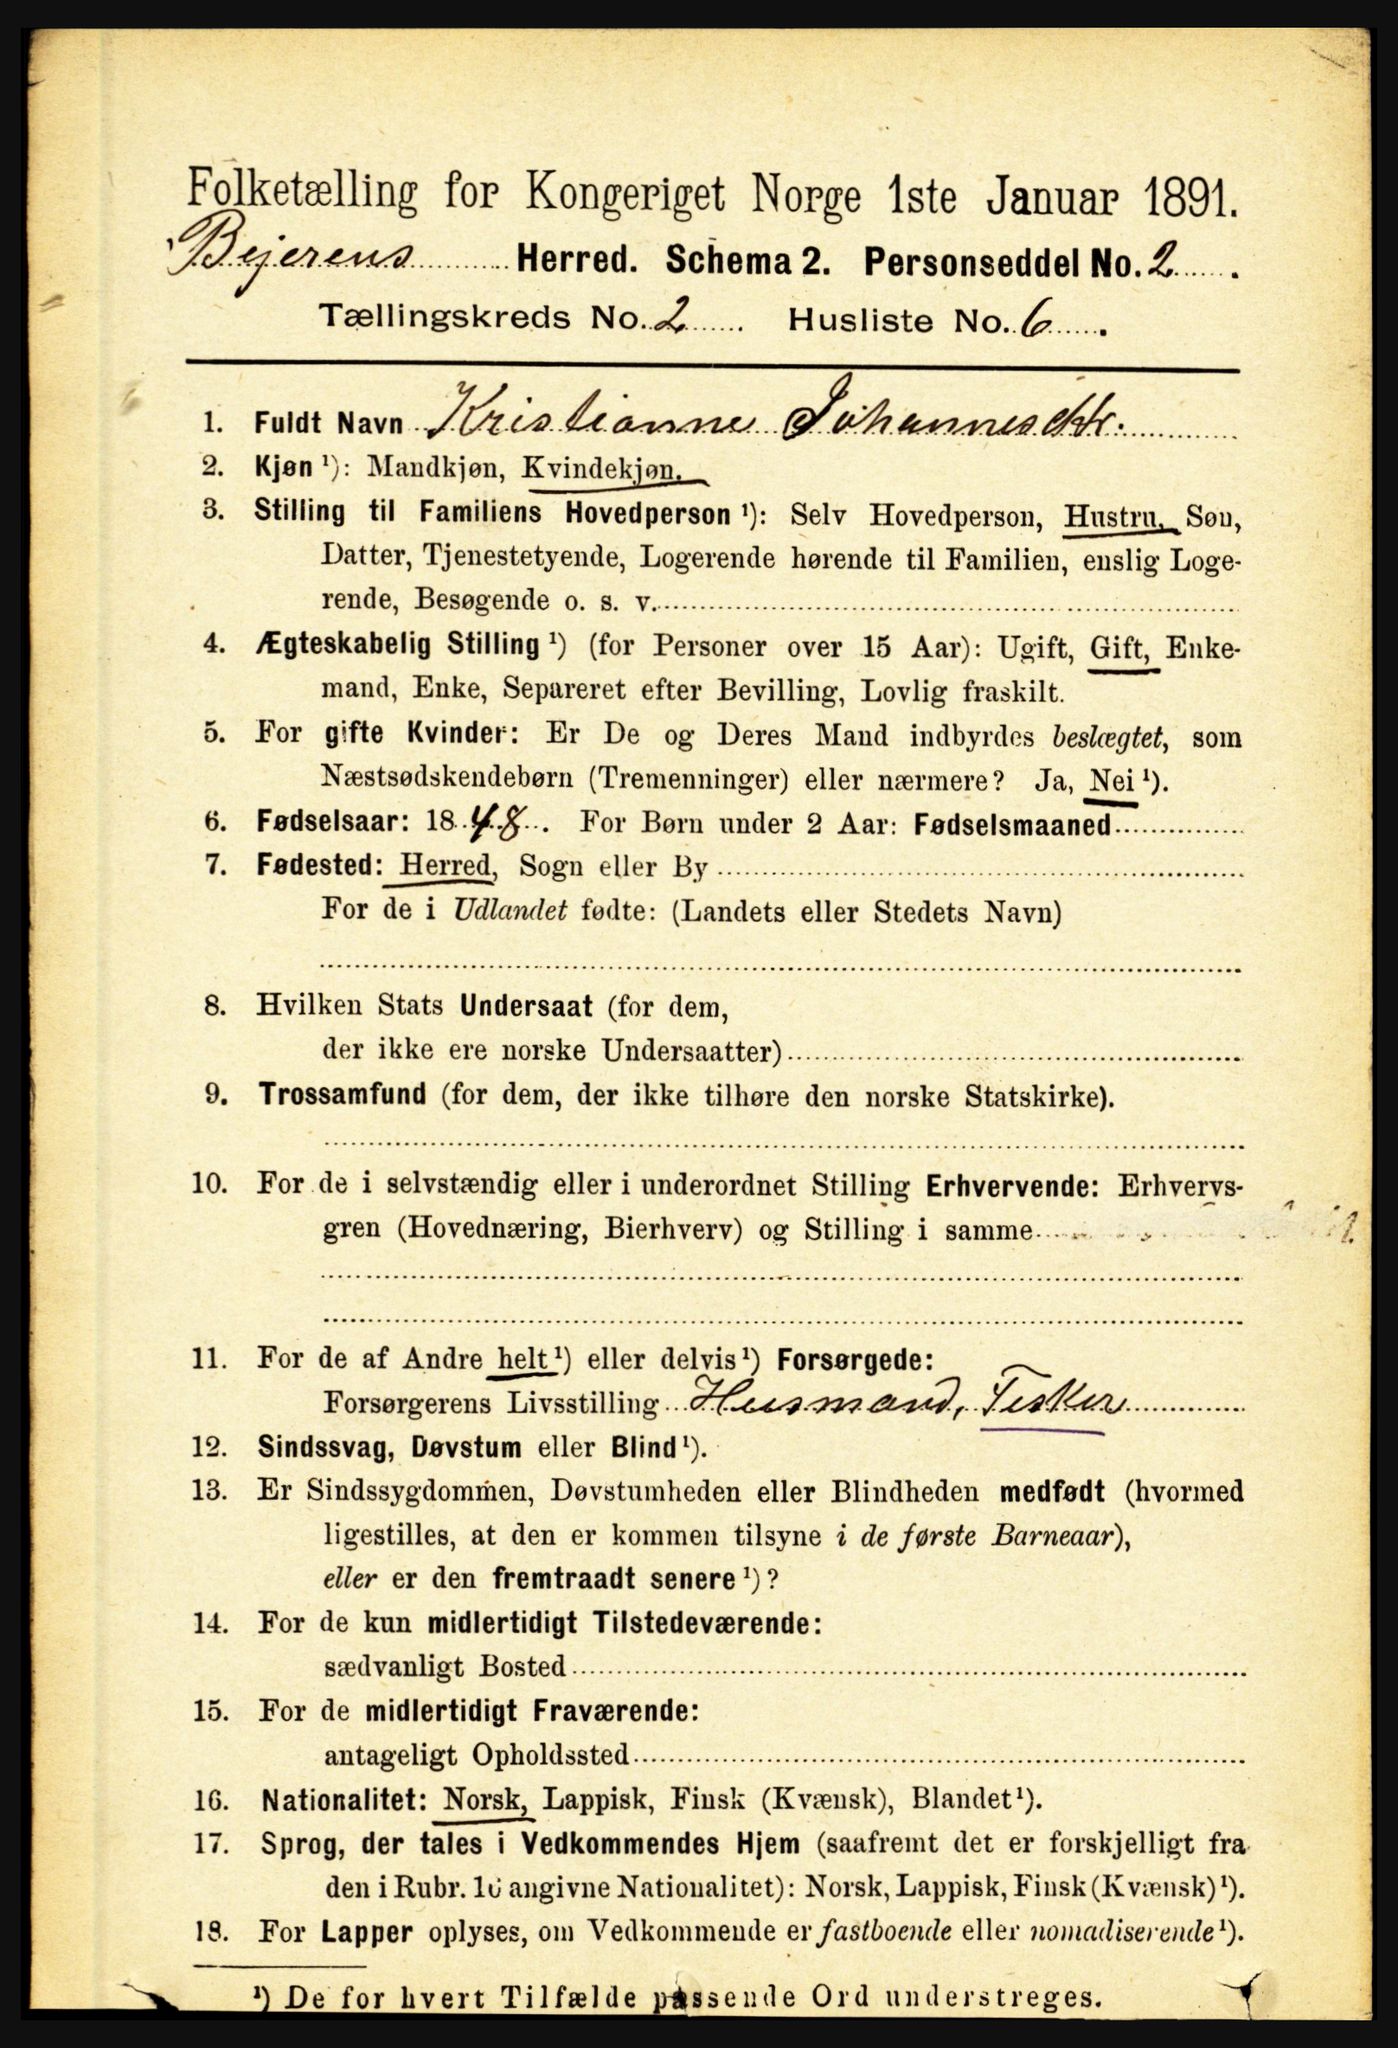 Folketælling for Kongeriget Norge 1ste Januar 1891.
Bejerens Herred. Schema 2. Personseddel No. 2.
Tællingskreds No. 2 Husliste No. 6.
1. Fuldt Navn Kristianne Johannesdtr.
2. Kjøn ¹): Mandkjøn, Kvindekjøn.
3. Stilling til Familiens Hovedperson ¹): Selv Hovedperson, Hustru, Søn,
Datter, Tjenestetyende, Logerende hørende til Familien, enslig Loge-
rende, Besøgende o. s. v.
4. Ægteskabelig Stilling ¹) (for Personer over 15 Aar): Ugift, Gift, Enke-
mand, Enke, Separeret efter Bevilling, Lovlig fraskilt.
5. For gifte Kvinder: Er De og Deres Mand indbyrdes beslægtet, som
Næstsødskendebørn (Tremenninger) eller nærmere? Ja, Nei ¹).
6. Fødselsaar: 1848. For Børn under 2 Aar: Fødselsmaaned
7. Fødested: Herred, Sogn eller By
For de i Udlandet fødte: (Landets eller Stedets Navn)
8. Hvilken Stats Undersaat (for dem,
der ikke ere norske Undersaatter)
9. Trossamfund (for dem, der ikke tilhøre den norske Statskirke).
10. For de i selvstændig eller i underordnet Stilling Erhvervende: Erhvervs-
gren (Hovednæring, Bierhverv) og Stilling i samme
11. For de af Andre helt ¹) eller delvis ¹) Forsørgede:
Forsørgerens Livsstilling Husmand, Fisker
12. Sindssvag, Døvstum eller Blind ¹).
13. Er Sindssygdommen, Døvstumheden eller Blindheden medfødt (hvormed
ligestilles, at den er kommen tilsyne i de første Barneaar),
eller er den fremtraadt senere ¹)?
14. For de kun midlertidigt Tilstedeværende:
sædvanligt Bosted
15. For de midlertidigt Fraværende:
antageligt Opholdssted
16. Nationalitet: Norsk, Lappisk, Finsk (Kvænsk), Blandet ¹).
17. Sprog, der tales i Vedkommendes Hjem (saafremt det er forskjelligt fra
den i Rubr. 16 angivne Nationalitet): Norsk, Lappisk, Finsk (Kvænsk) ¹).
18. For Lapper oplyses, om Vedkommende er fastboende eller nomadiserende ¹).
¹) De for hvert Tilfælde passende Ord understreges.